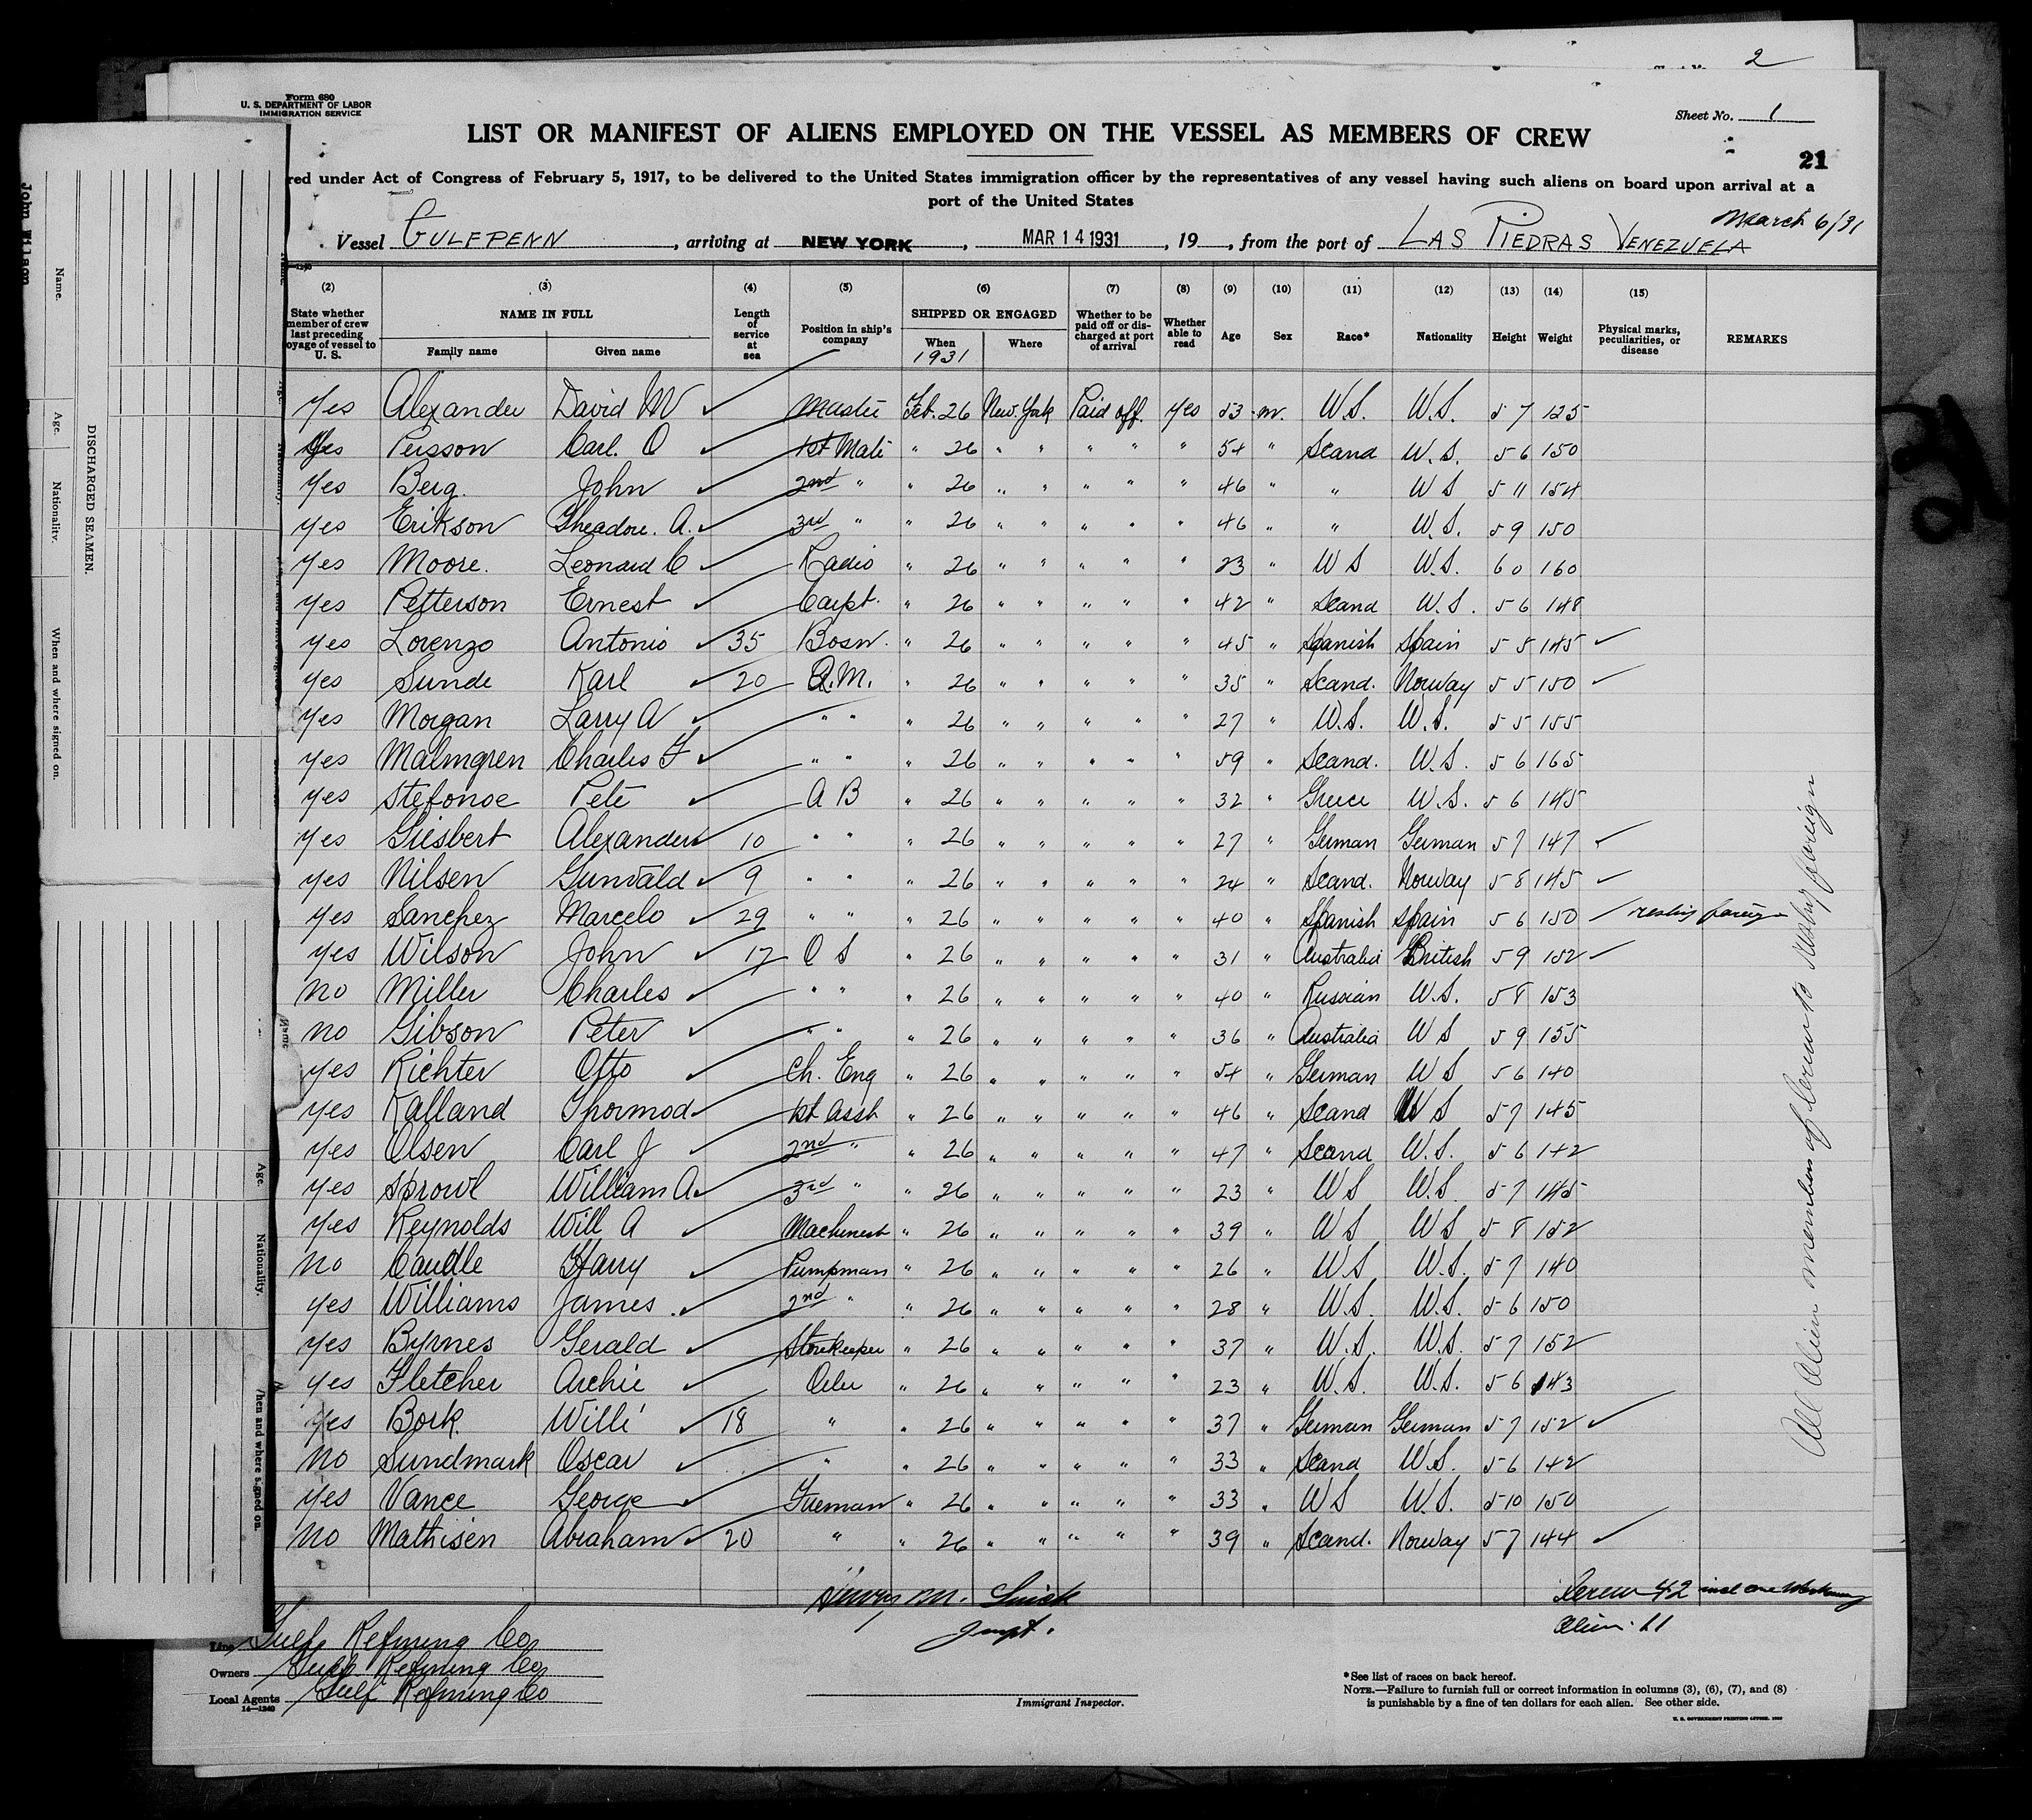 2
Form 680
U. S. DEPARTMENT OF LABOR
IMMIGRATION SERVICE
Sheet No. 1
LIST OR MANIFEST OF ALIENS EMPLOYED ON THE VESSEL AS MEMBERS OF CREW
21
red under Act of Congress of February 5, 1917, to be delivered to the United States immigration officer by the representatives of any vessel having such aliens on board upon arrival at a
port of the United States
March 6/31
Vessel GULFPENN, arriving at NEW YORK, MAR 14 1931, 19 , from the port of LAS PIEDRAS VENEZUELA
(2) (3) (4) (5) (6) (7) (8) (9) (10) (11) (12) (13) (14) (15)
State whether member of crew last preceding oyage of vessel to U. S. | NAME IN FULL Family name Given name | Length of service at sea | Position in ship's company | SHIPPED OR ENGAGED When 1931 Where | Whether to be paid off or discharged at port of arrival | Whether able to read | Age | Sex | Race* | Nationality | Height | Weight | Physical marks, peculiarities, or disease | REMARKS
Yes Alexander David W ✓ Master Feb. 26 New York Paid off Yes 53 m. U.S. U.S. 5 7 125
Yes Persson Carl. O ✓ 1st Mate " 26 " " " " " 54 " Scand U.S. 5 6 150
Yes Berg. John ✓ 2nd " " 26 " " " " " 46 " " U S 5 11 154
Yes Erikson Theadore. A. ✓ 3rd " " 26 " " " " " 46 " " U.S. 5 9 150
Yes Moore. Leonard C ✓ Radio " 26 " " " " " 23 " U S U.S. 6 0 160
Yes Petterson Ernest ✓ Carpt. " 26 " " " " " 42 " Scand U.S. 5 6 148
Yes Lorenzo Antonio ✓ 35 Bosn. " 26 " " " " " 45 " Spanish Spain 5 8 145 ✓
Yes Sunde Karl ✓ 20 Q.M. " 26 " " " " " 35 " Scand. Norway 5 5 150 ✓
Yes Morgan Larry A ✓ " " " 26 " " " " " 27 " U.S. U.S. 5 5 155
Yes Malmgren Charles F ✓ " " " 26 " " " " " 59 " Scand. U.S. 5 6 165
Yes Stefonoe Pete ✓ A B " 26 " " " " " 32 " Greece U.S. 5 6 145
Yes Giesbert Alexander ✓ 10 " " " 26 " " " " " 27 " German German 5 7 147 ✓
Yes Nilsen Gunvald ✓ 9 " " " 26 " " " " " 24 " Scand. Norway 5 8 145 ✓
Yes Sanchez Marcelo ✓ 29 " " " 26 " " " " " 40 " Spanish Spain 5 6 150 ✓ reship foreign
Yes Wilson John ✓ 17 O S " 26 " " " " " 31 " Australia British 5 9 152 ✓
No Miller Charles ✓ " " " 26 " " " " " 40 " Russian U.S. 5 8 153
No Gibson Peter ✓ " " " 26 " " " " " 36 " Australia U S 5 9 155
Yes Richter Otto ✓ Ch. Eng " 26 " " " " " 54 " German U S 5 6 140
Yes Kalland Thormod ✓ 1st Asst " 26 " " " " " 46 " Scand U S 5 7 145
Yes Olsen Carl J ✓ 2nd " " 26 " " " " " 47 " Scand U.S. 5 6 142
Yes Sprowl William A ✓ 3rd " " 26 " " " " " 23 " U S U.S. 5 7 145
Yes Reynolds Will A ✓ Machenest " 26 " " " " " 39 " U S U S 5 8 152
No Caudle Harry ✓ Pumpman " 26 " " " " " 26 " U.S U.S. 5 7 140
Yes Williams James ✓ 2nd " " 26 " " " " " 28 " U.S. U.S. 5 6 150
Yes Byrnes Gerald ✓ Storekeeper " 26 " " " " " 37 " U.S. U.S. 5 7 152
Yes Fletcher Archie ✓ Oiler " 26 " " " " " 23 " U.S. U.S. 5 6 143
Yes Bork. Willi ✓ 18 " " 26 " " " " " 37 " German German 5 7 152 ✓
No Sundmark Oscar ✓ " " 26 " " " " " 33 " Scand U.S. 5 6 142
Yes Vance George ✓ Fireman " 26 " " " " " 33 " U S U.S. 5 10 150
No Mathisen Abraham ✓ 20 " " 26 " " " " " 39 " Scand. Norway 5 7 144 ✓
All Alien members of Crew to reship foreign
Crew 42 incl one Workaway
Alien 11
Inspt.
Line Gulf Refining Co
Owners Gulf Refining Co
Local Agents Gulf Refining Co
14—1240
Immigrant Inspector.
*See list of races on back hereof.
NOTE.—Failure to furnish full or correct information in columns (3), (6), (7), and (8)
is punishable by a fine of ten dollars for each alien. See other side.
John Wilson
Name.
Age.
Nationality.
When and where signed on.
DISCHARGED SEAMEN.
Age.
Nationality.
hen and where signed on.